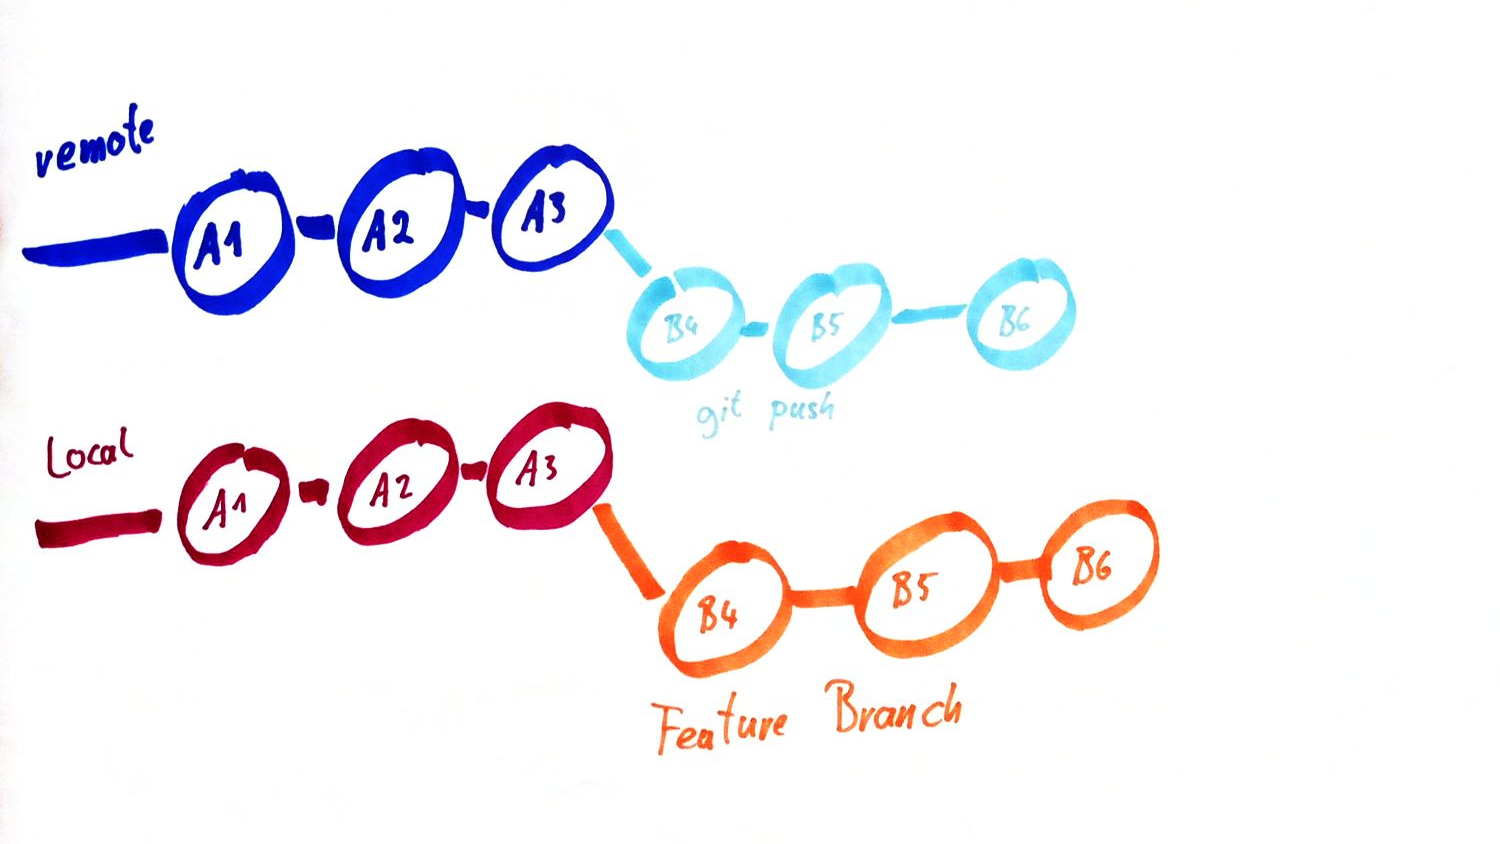 remote
A1 A2 A3
B4 B5 B6
git push
Local
A1 A2 A3
B4 B5 B6
Feature Branch